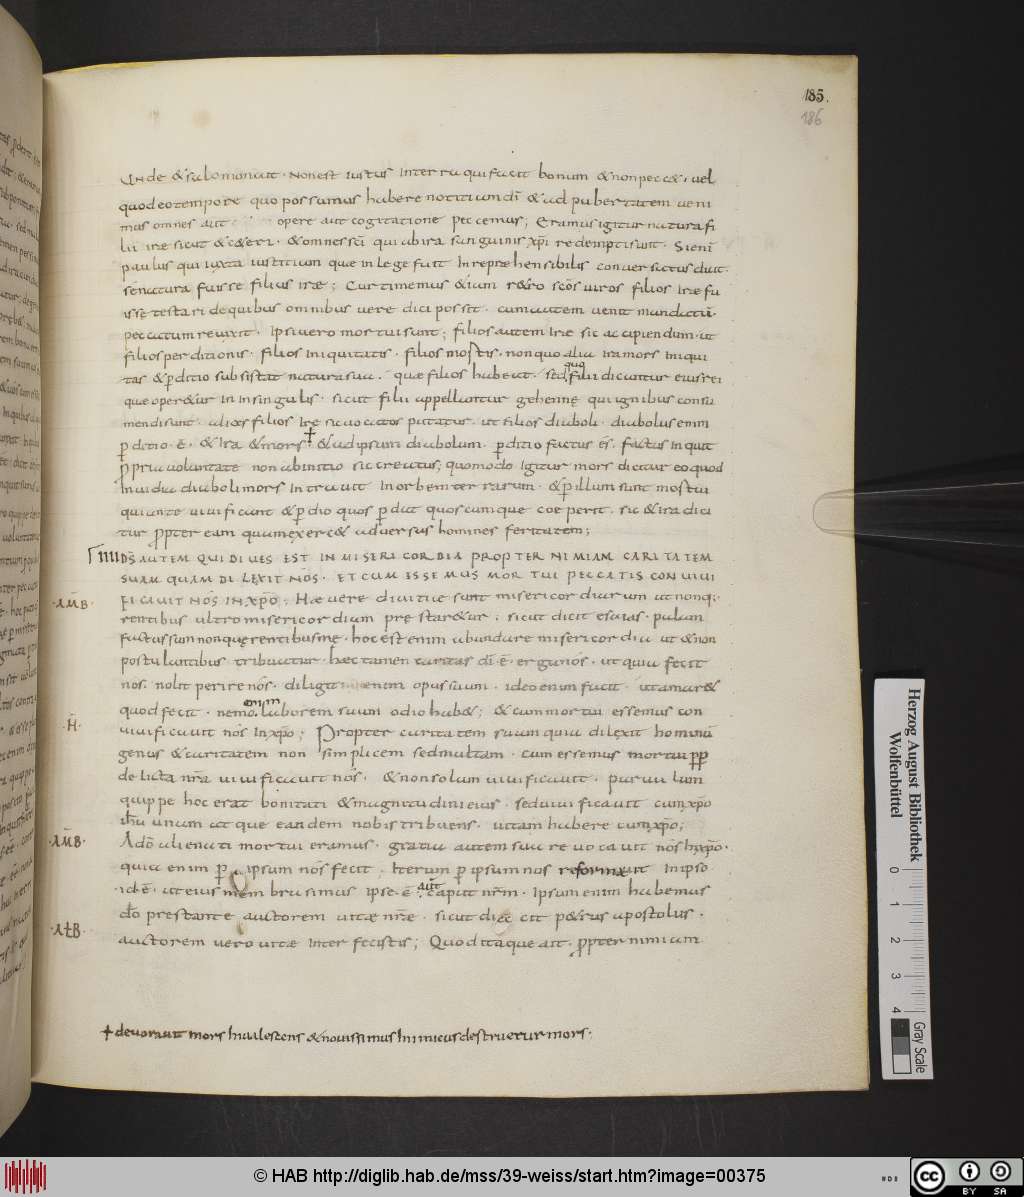 185.
186
Unde & salomon ait · non est iustus in terra qui faciat bonum & non pecc& · uel
quod eo tempore quo possumus habere notitiam dī & ad pubertatem ueni
mus omnes aut opere aut cogitatione peccemus; Eramus igitur natura fi
lii irae sicut & c&eri · & omnes sc̄i qui ab ira sanguinis xp̄i redempti sunt · Si enī
paulus qui iuxta iustitiam quae in lege fuit inrepraehensibilis conuersatus dicit
se natura fuisse filium irae; Cur timemus &iam r&ro sc̄os uiros filios irae fu
isse testari de quibus omnibus uere dici possit · cum autem uenit mandatū
peccatum reuixit · ipsi uero mortui sunt; filios autem irae sic accipiendum · ut
filios perditionis · filios iniquitatis · filios mortis · non quo alia ira mors iniqui
tas & p̱ditio subsistat natura sua · quae filios habeat · sed quo filii dicuntur eius rei
quae oper&ur in singulis · sicut filii appellantur gehenne qui ignibus consu
mendi sunt · alios filios ire sic uocatos putatur · ut filios diaboli · diabolus enim
p̱ditio · ē · & ira & mors · ☩ & ad ipsum diabolum · p̱ditio factus es · factus inquit
ꝓpria uoluntate non ab initio sic creatus; quomodo igitur mors dicatur eo quod
inuidia diaboli mors intrauit in orbem terrarum · & p̱ illum sunt mortui
qui ante uiuificant & p̱dio quos p̱dat quoscumque coeperit · sic & ira dici
tur ꝓpter eam quam exerc& aduersus homines feritatem;
IIII D̄S AUTEM QUI DIUES EST IN MISERICORDIA PROPTER NIMIAM CARITATEM
SUAM QUAM DILEXIT NOS · ET CUM ESSEMUS MORTUI PECCATIS CONUIUI
FICAUIT NOS IN XP̄O; Hae uere diuitiae sunt misericordiarum ut non q̨
·AM̄B· rentibus ultro misericordiam prestar&ur; sicut dicit esaias · palam
factus sum non querentibus me · hoc est enim abundare misericordia ut & non
postulantibus tribuatur · haec tamen caritas dī · ē · erga nos · ut quia fecit
nos · nolit perire nos · diligit enim opus suum · ideo enim facit · ut amar&
quod fecit · nemo enim laborem suum odio hab&; & cum mortui essemus con
·H̄· uiuificauit nos in xp̄o; Propter caritatem suam quia dilexit hominū
genus & caritatem non simplicem sed multam · cum essemus mortui ꝓp
delicta nr̄a uiuificauit nos · & non solum uiuificauit · paruulum
quippe hoc erat bonitati & magnitudini eius · sed uiuificauit cum xp̄o
ih̄u unum atque eandem nobis tribuens · uitam habere cum xp̄o;
·AM̄B· A dō alienati mortui eramus · gratia autem sua reuocauit nos in xp̄o ·
quia enim p̱ ipsum nos fecit · iterum p̱ ipsum nos reformauit in ipso
· id ē · ut eius membra simus ipse · ē · aut̄ caput nr̄m · ipsum enim habemus
·AtB· dō prestante auctorem uitae nr̄ae · sicut dicit p&rus apostolus ·
auctorem uero uitae interfecistis; Quod itaque ait · ꝓpter nimiam
☩ deuorauit mors inualescens & nouissimus inimicus destruetur mors ·
Herzog August Bibliothek
Wolfenbüttel
0 1 2 3 4
Gray Scale
© HAB http://diglib.hab.de/mss/39-weiss/start.htm?image=00375
cc BY SA